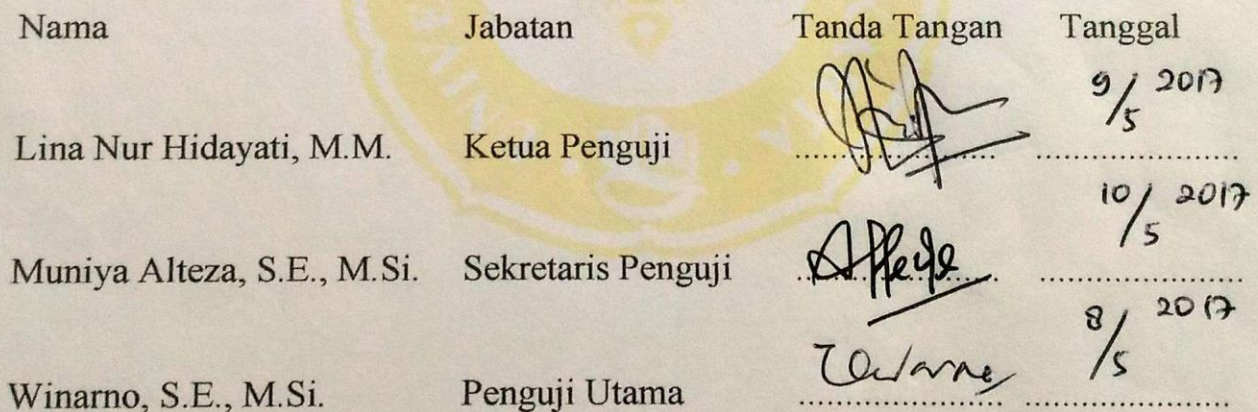 Nama Jabatan Tanda Tangan Tanggal
9/5 2017
Lina Nur Hidayati, M.M. Ketua Penguji .................... ....................
10/5 2017
Muniya Alteza, S.E., M.Si. Sekretaris Penguji .................... ....................
8/5 2017
Winarno, S.E., M.Si. Penguji Utama .................... ....................